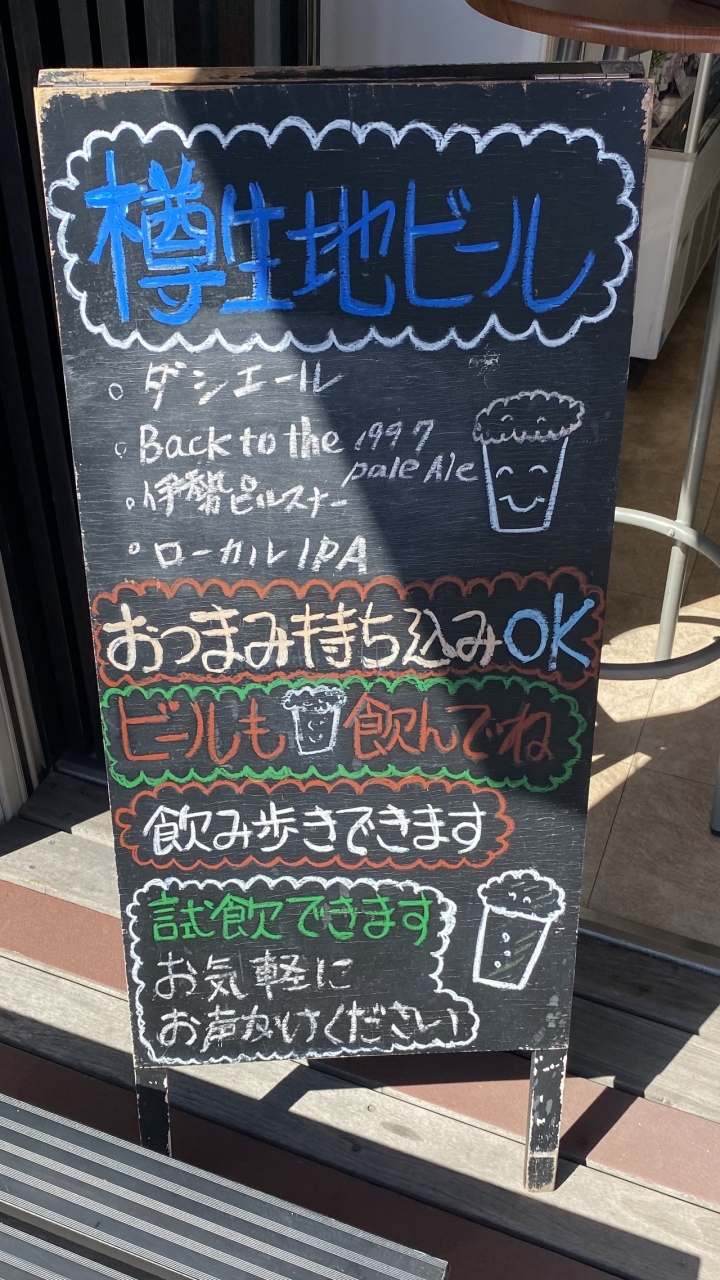 樽生地ビール
。ダシエール
。Back to the 1997
pale Ale
。伊勢ピルスナー
。ローカルIPA
おつまみ持ち込みOK
ビールも飲んでね
飲み歩きできます
試飲できます
お気軽に
お声がけください